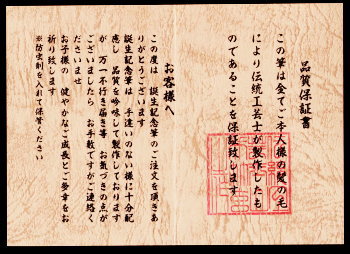 品質保証書
この筆は全てご本人様の髪の毛
により伝統工芸士が製作したも
のであることを保証致します
お客様へ
この度は 誕生記念筆のご注文を頂きあ
りがとうございます
誕生記念筆は 手違いのない様に十分配
慮し 品質を吟味して製作しております
が 万一不行き届き等 お気づきの点が
ございましたら お手数ですがご連絡く
ださいませ
お子様の 健やかなご成長とご多幸をお
祈り致します
※防虫剤を入れて保管ください